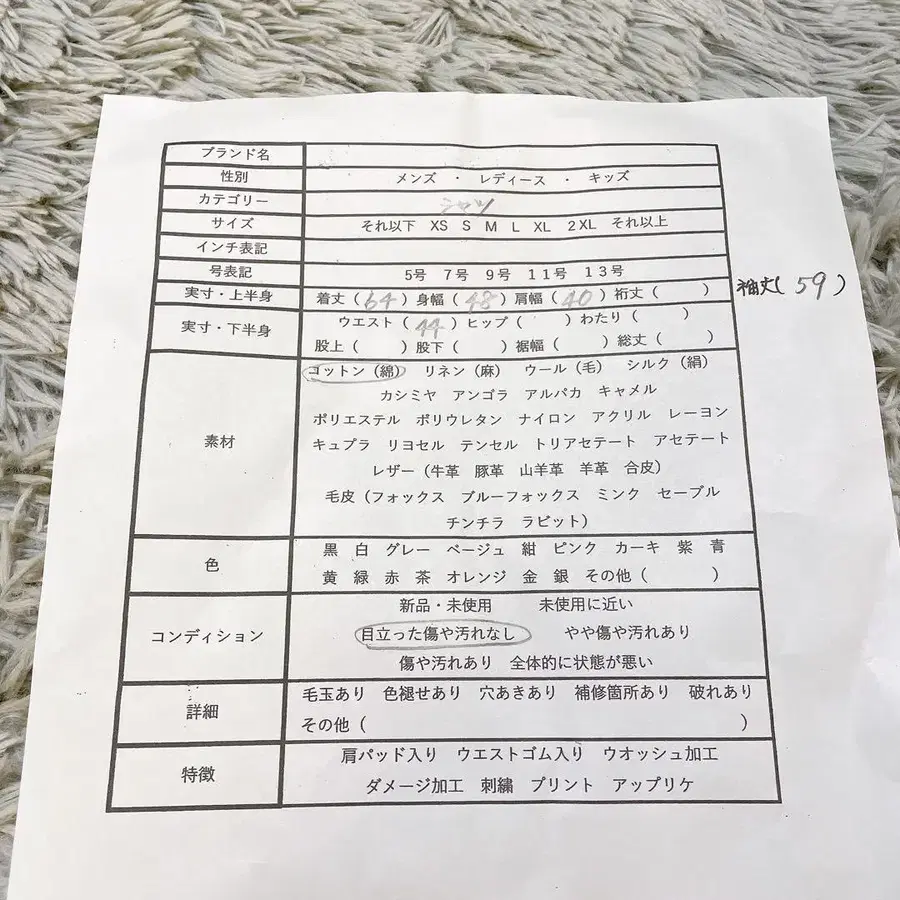 ブランド名
性別 メンズ ・ レディース ・ キッズ
カテゴリー シャツ
サイズ それ以下 XS S M L XL 2XL それ以上
インチ表記
号表記 5号 7号 9号 11号 13号
実寸・上半身 着丈(64)身幅(48)肩幅(40)裄丈( ) 袖丈(59)
実寸・下半身 ウエスト(44)ヒップ( )わたり( )
股上( )股下( )裾幅( )総丈( )
素材 コットン(綿) リネン(麻) ウール(毛) シルク(絹)
カシミヤ アンゴラ アルパカ キャメル
ポリエステル ポリウレタン ナイロン アクリル レーヨン
キュプラ リヨセル テンセル トリアセテート アセテート
レザー(牛革 豚革 山羊革 羊革 合皮)
毛皮(フォックス ブルーフォックス ミンク セーブル
チンチラ ラビット)
色 黒 白 グレー ベージュ 紺 ピンク カーキ 紫 青
黄 緑 赤 茶 オレンジ 金 銀 その他( )
コンディション 新品・未使用 未使用に近い
目立った傷や汚れなし やや傷や汚れあり
傷や汚れあり 全体的に状態が悪い
詳細 毛玉あり 色褪せあり 穴あきあり 補修箇所あり 破れあり
その他( )
特徴 肩パッド入り ウエストゴム入り ウオッシュ加工
ダメージ加工 刺繍 プリント アップリケ